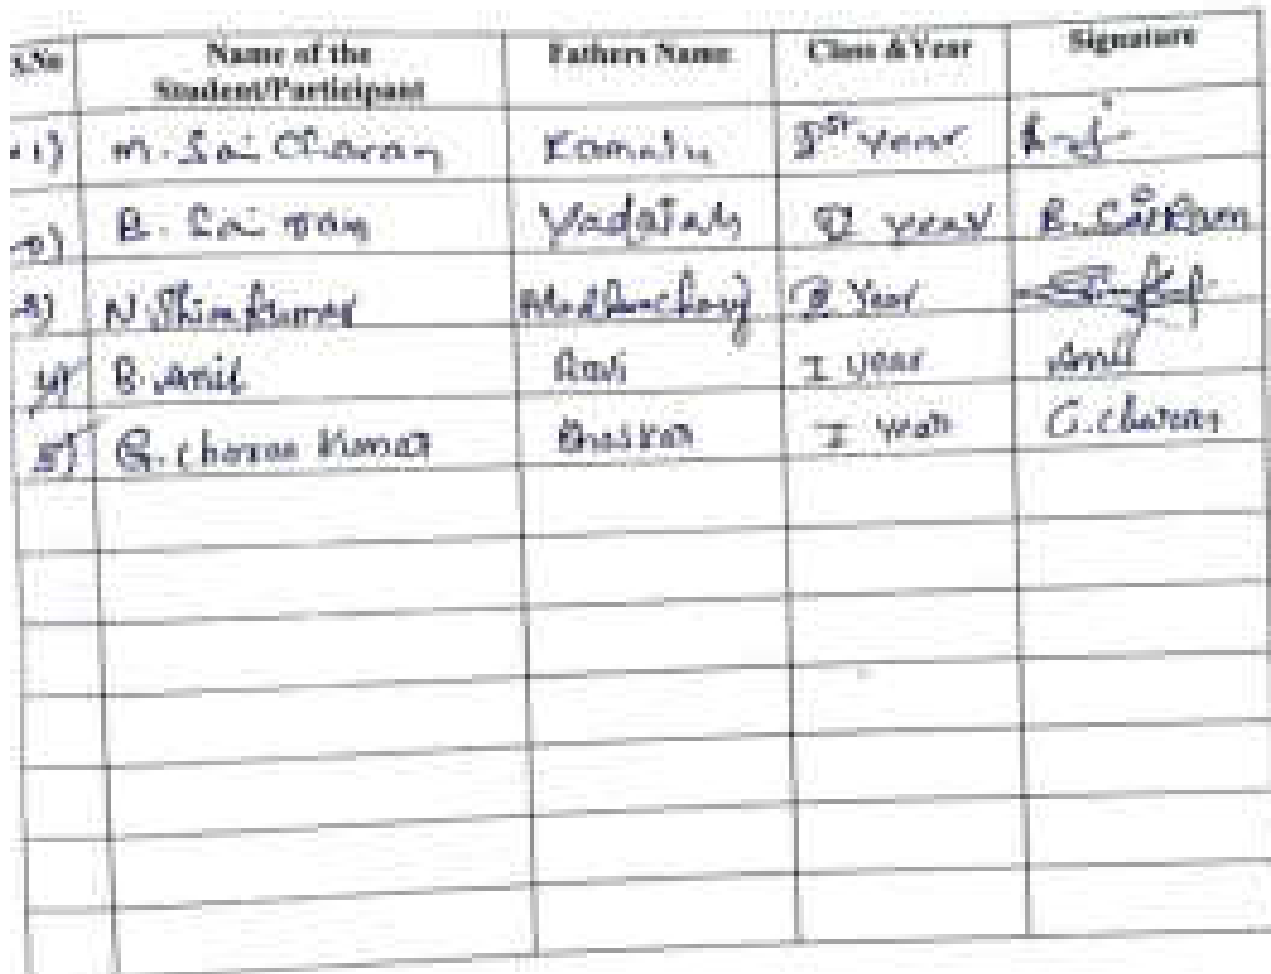 S.No Name of the Student/Participant Fathers Name Class & Year Signature
1) M. Sai Charan Ist year
2) B. Sai ram Yadaiah year B. Sai Ram
3) N. Year
4) B. Anil Ravi I year Anil
5) G. Charan Kumar Bhaskar I year G. Charan